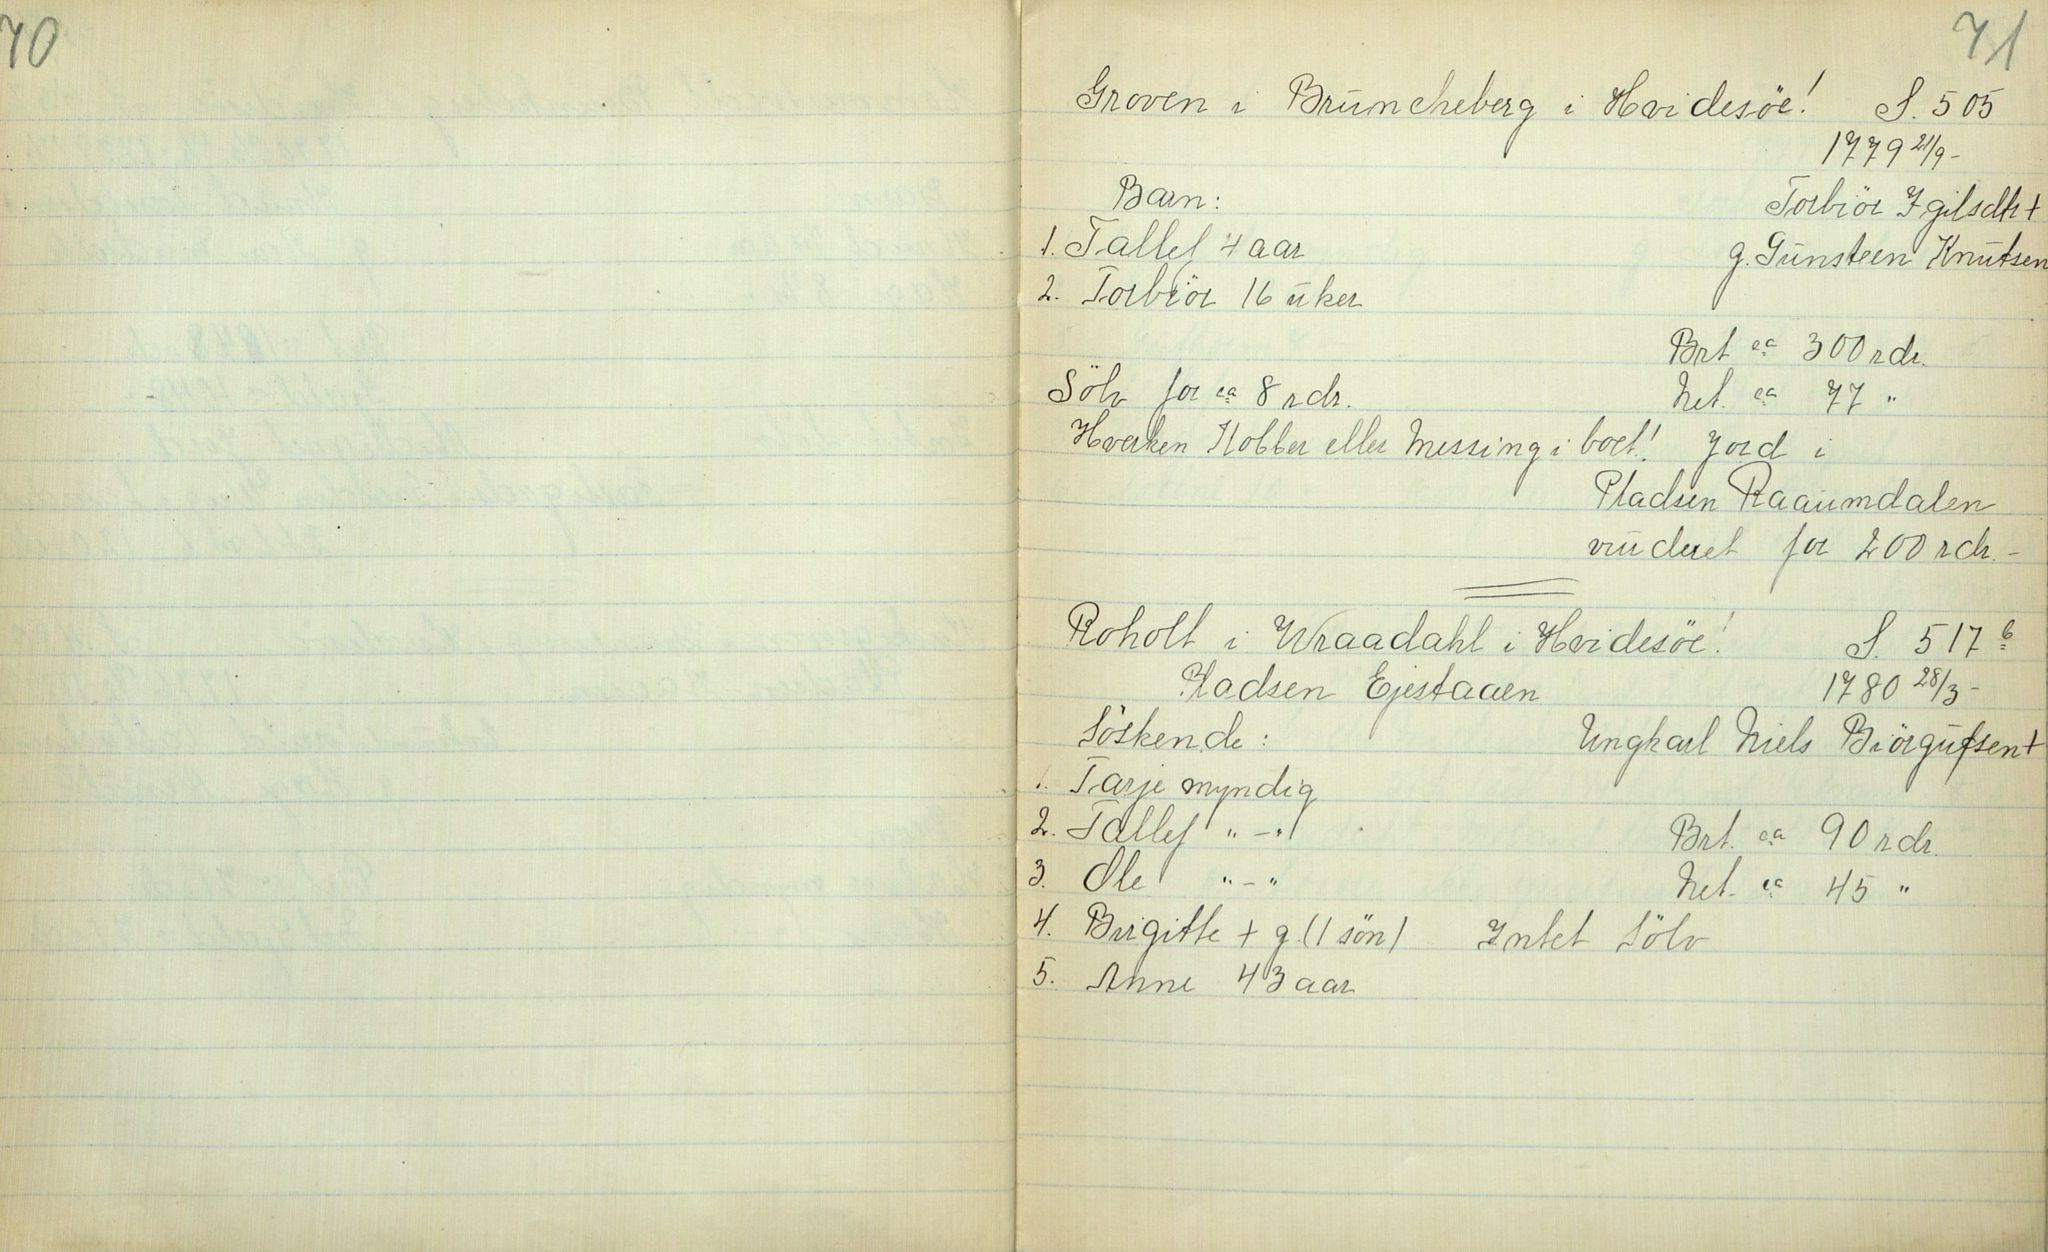 70
71
Groven i Brüncheberg i Hvidesöe! S. 505
1779 21/9-
Barn: Torbiör Igilsdtr +
1. Tallef 4 aar g. Günsteen Knütsen
2. Torbiör 16 üker
Brt ca 300 rdr.
Sölv for ca 8 rdr. Net. ca 77 "
Hverken Kobber eller Messing i boet! Jord i
Pladsen Raaümdalen
vürderet for 200 rdr. -
Roholt i Wraadahl i Hvidesöe! S. 517 b
Pladsen Ejestaaen 1780 28/3-
Söskende: Ungkarl Niels Biörgüfsen +
1. Tarje myndig
2. Tallef "-" Brt. ca 90 rdr.
3. Ole "-" Net. ca 45 "
4. Birgitte + g. (1 sön) Intet Sölv
5. Anne 43 aar